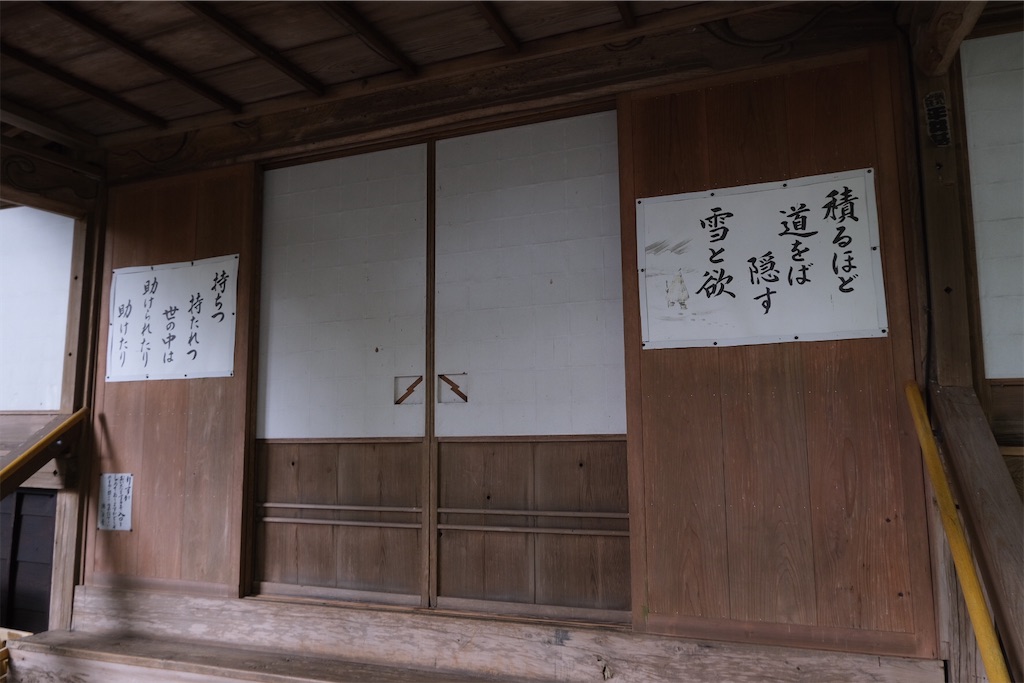 積るほど
道をば
隠す
雪と欲
持ちつ
持たれつ
世の中は
助けられたり
助けたり